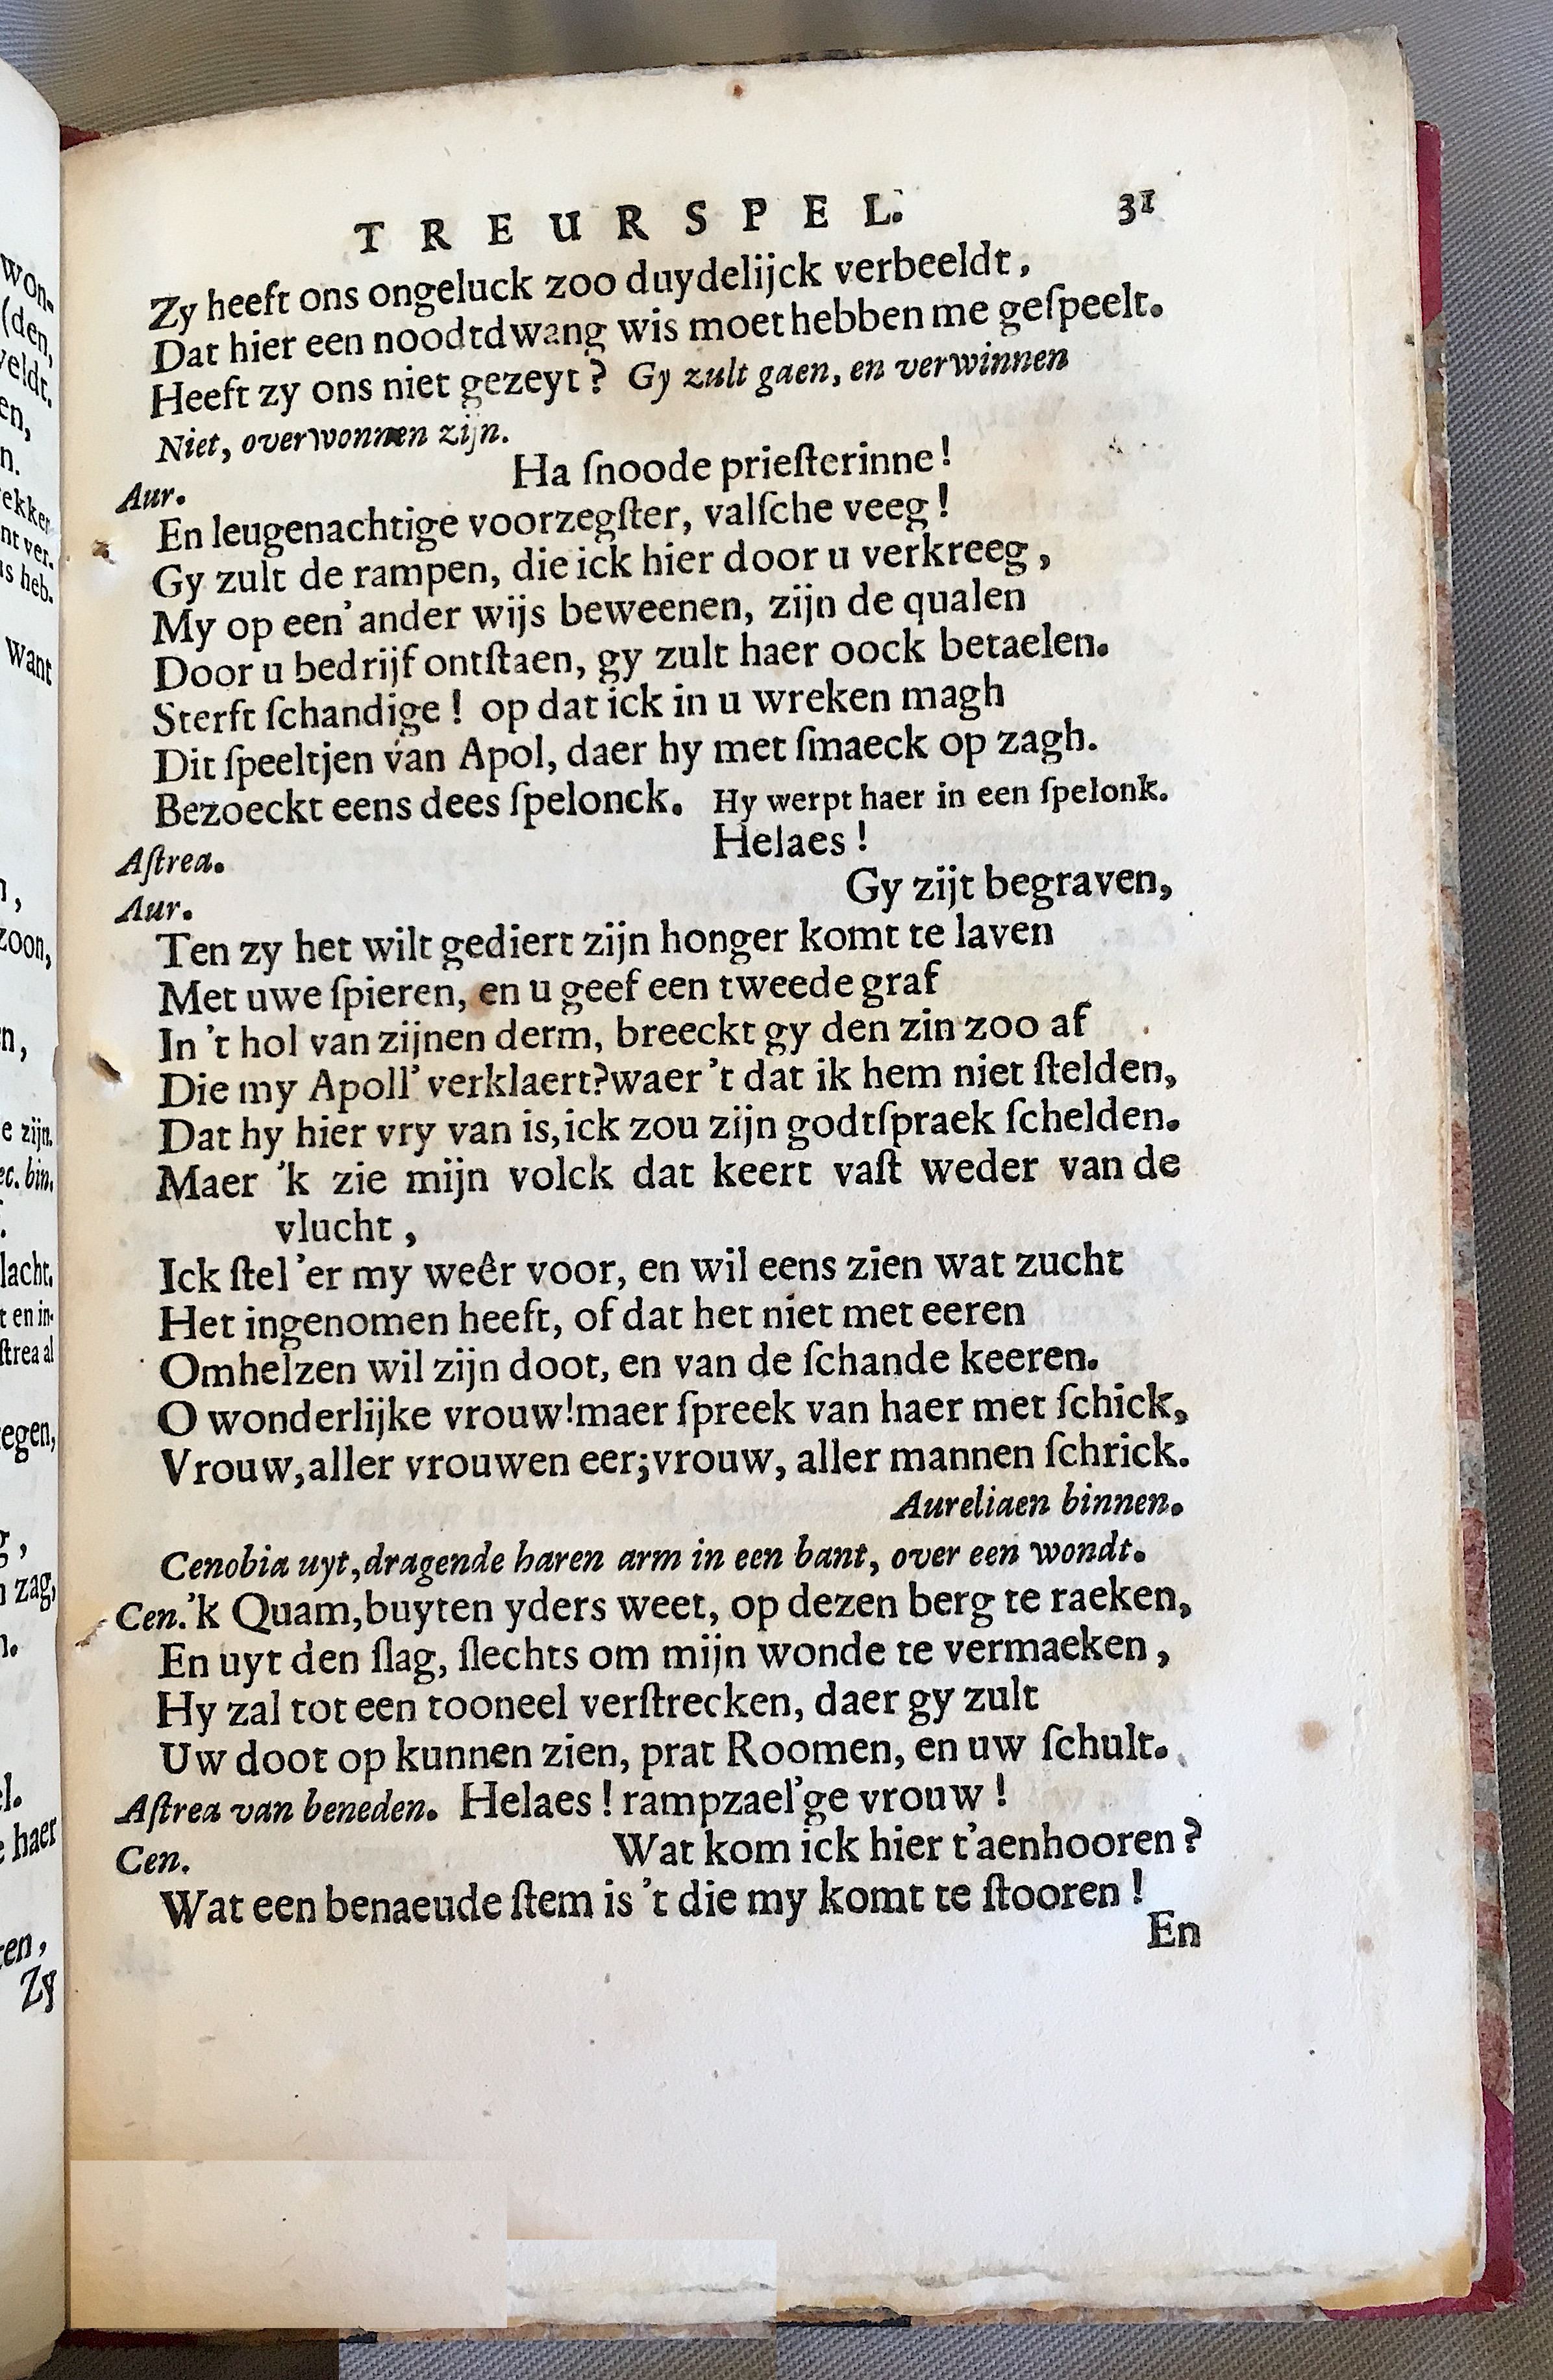 TREURSPEL. 31
Zy heeft ons ongeluck zoo duydelijck verbeeldt,
Dat hier een noodtdwang wis moet hebben me geſpeelt.
Heeft zy ons niet gezeyt? Gy zult gaen, en verwinnen
Niet, overwonnen zijn.
Aur. Ha ſnoode prieſterinne!
En leugenachtige voorzegſter, valſche veeg!
Gy zult de rampen, die ick hier door u verkreeg,
My op een' ander wijs beweenen, zijn de qualen
Door u bedrijf ontſtaen, gy zult haer oock betaelen.
Sterft ſchandige! op dat ick in u wreken magh
Dit ſpeeltjen van Apol, daer hy met ſmaeck op zagh.
Bezoeckt eens dees ſpelonck. Hy werpt haer in een ſpelonk.
Aſtrea. Helaes!
Aur. Gy zijt begraven,
Ten zy het wilt gediert zijn honger komt te laven
Met uwe ſpieren, en u geef een tweede graf
In 't hol van zijnen derm, breeckt gy den zin zoo af
Die my Apoll' verklaert? waer 't dat ik hem niet ſtelden,
Dat hy hier vry van is, ick zou zijn godtſpraek ſchelden.
Maer 'k zie mijn volck dat keert vaſt weder van de
vlucht,
Ick ſtel 'er my weêr voor, en wil eens zien wat zucht
Het ingenomen heeft, of dat het niet met eeren
Omhelzen wil zijn doot, en van de ſchande keeren.
O wonderlijke vrouw! maer ſpreek van haer met ſchick,
Vrouw, aller vrouwen eer; vrouw, aller mannen ſchrick.
Aureliaen binnen.
Cenobia uyt, dragende haren arm in een bant, over een wondt.
Cen. 'k Quam, buyten yders weet, op dezen berg te raeken,
En uyt den ſlag, ſlechts om mijn wonde te vermaeken,
Hy zal tot een tooneel verſtrecken, daer gy zult
Uw doot op kunnen zien, prat Roomen, en uw ſchult.
Aſtrea van beneden. Helaes! rampzael'ge vrouw!
Cen. Wat kom ick hier t'aenhooren?
Wat een benaeude ſtem is 't die my komt te ſtooren!
En